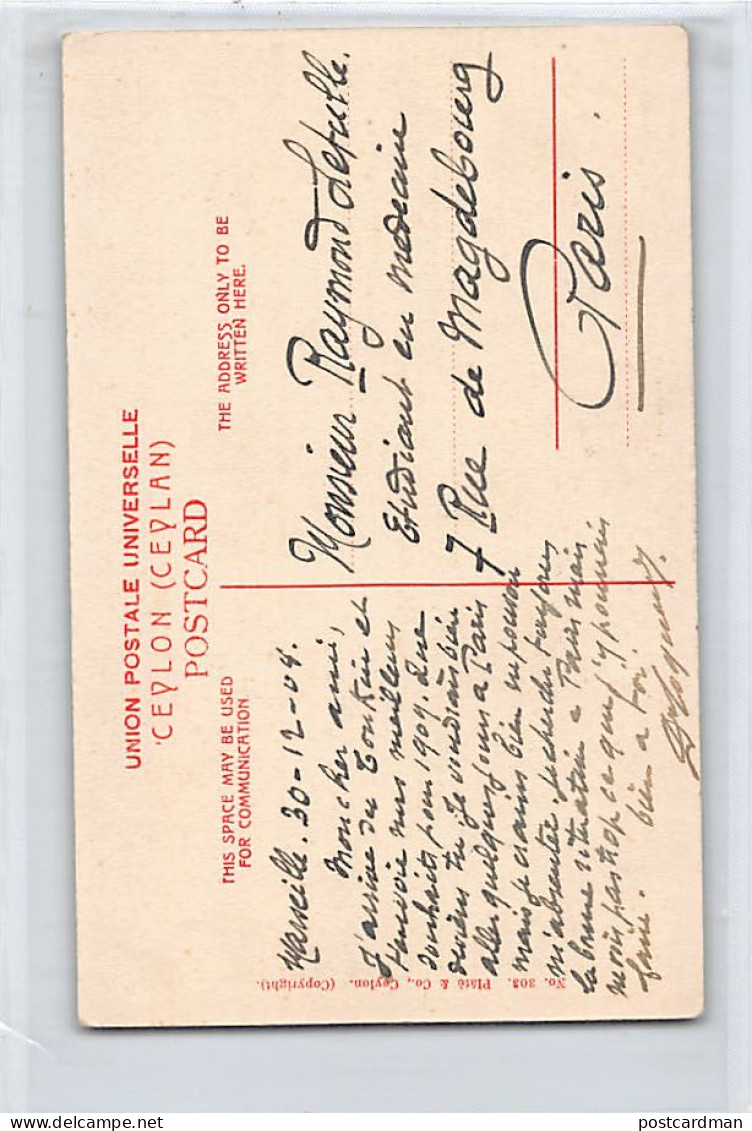 UNION POSTALE UNIVERSELLE
CEYLON (CEYLAN)
POSTCARD
THIS SPACE MAY BE USED
FOR COMMUNICATION
THE ADDRESS ONLY TO BE
WRITTEN HERE.
Marseille. 30-12-08.
Mon cher ami,
J'arrive du Tonkin et
t'envoie mes meilleurs
souhaits pour 1909. Que
deviens tu, Je voudrais bien
aller quelques jours a Paris
mais je crains bien ne pouvoir
m'absenter. Je cherche toujours
la bonne situation a Paris mais
ne vois pas trop ce que j'y pourrais
faire. bien a toi.
Monsieur Raymond
Etudiant en medecine
7 Rue de Magdebourg
Paris.
No. 203. Plâté & Co., Ceylon. (Copyright).
postcardman